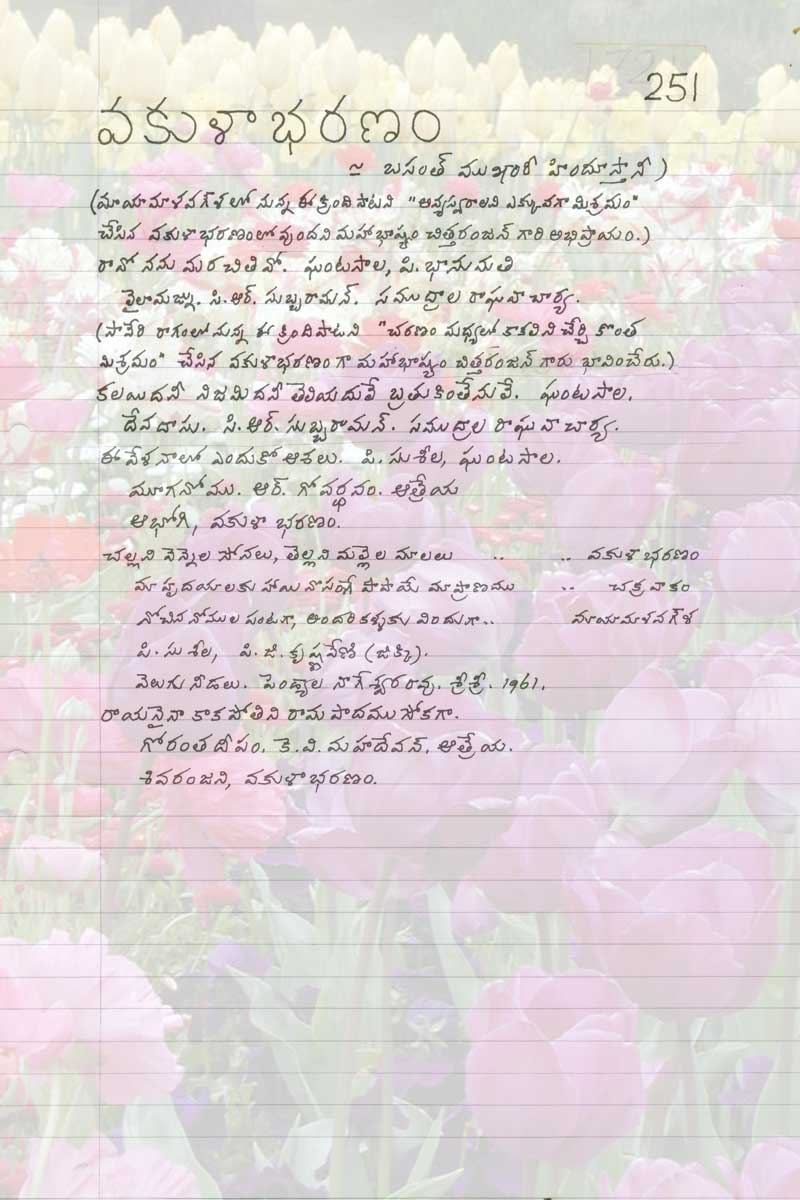 251
వకుళాభరణం
≃ బసంత్ ముఖారీ హిందూస్తానీ )
(మాయామాళవగౌళలో నున్న ఈ క్రింది పాటని "అన్యస్వరాలని ఎక్కువగా మిశ్రమం"
చేసిన వకుళాభరణంలో వుందని మహాభాష్యం చిత్తరంజన్ గారి అభిప్రాయం.)
రావో నను మరచితివో. ఘంటసాల, పి. భానుమతి
లైలామజ్ను. సి.ఆర్. సుబ్బరామన్. సముద్రాల రాఘవాచార్య.
(సావేరి రాగంలో నున్న ఈ క్రింది పాటని "చరణం మధ్యలో కాకలిని చేర్చి కొంత
మిశ్రమం" చేసిన వకుళాభరణంగా మహాభాష్యం చిత్తరంజన్ గారు భావించేరు.)
కలయిదనీ నిజమిదనీ తెలియదులే బ్రతుకింతేనులే. ఘంటసాల.
దేవదాసు. సి. ఆర్. సుబ్బరామన్. సముద్రాల రాఘవాచార్య.
ఈ వేళనాలో ఎందుకో ఆశలు. పి. సుశీల, ఘంటసాల.
మూగనోము. ఆర్. గోవర్ధనం. ఆత్రేయ
ఆభోగి, వకుళాభరణం.
చల్లని వెన్నెల సోనలు, తెల్లని మల్లెల మాలలు .. .. వకుళాభరణం
మా హృదయాలకు హాయి నొసంగే పాపాయే మా ప్రాణము .. చక్రవాకం
నోచిన నోముల పంటగా, అందరి కళ్ళకు విందుగా .. మాయామాళవగౌళ
పి. సుశీల, పి.జి. కృష్ణవేణి (జిక్కి).
వెలుగునీడలు. పెండ్యాల నాగేశ్వరరావు. శ్రీశ్రీ. 1961.
రాయినైనా కాకపోతిని రామ పాదము సోకగా.
గోరంత దీపం. కె.వి. మహదేవన్. ఆత్రేయ.
శివరంజని, వకుళాభరణం.